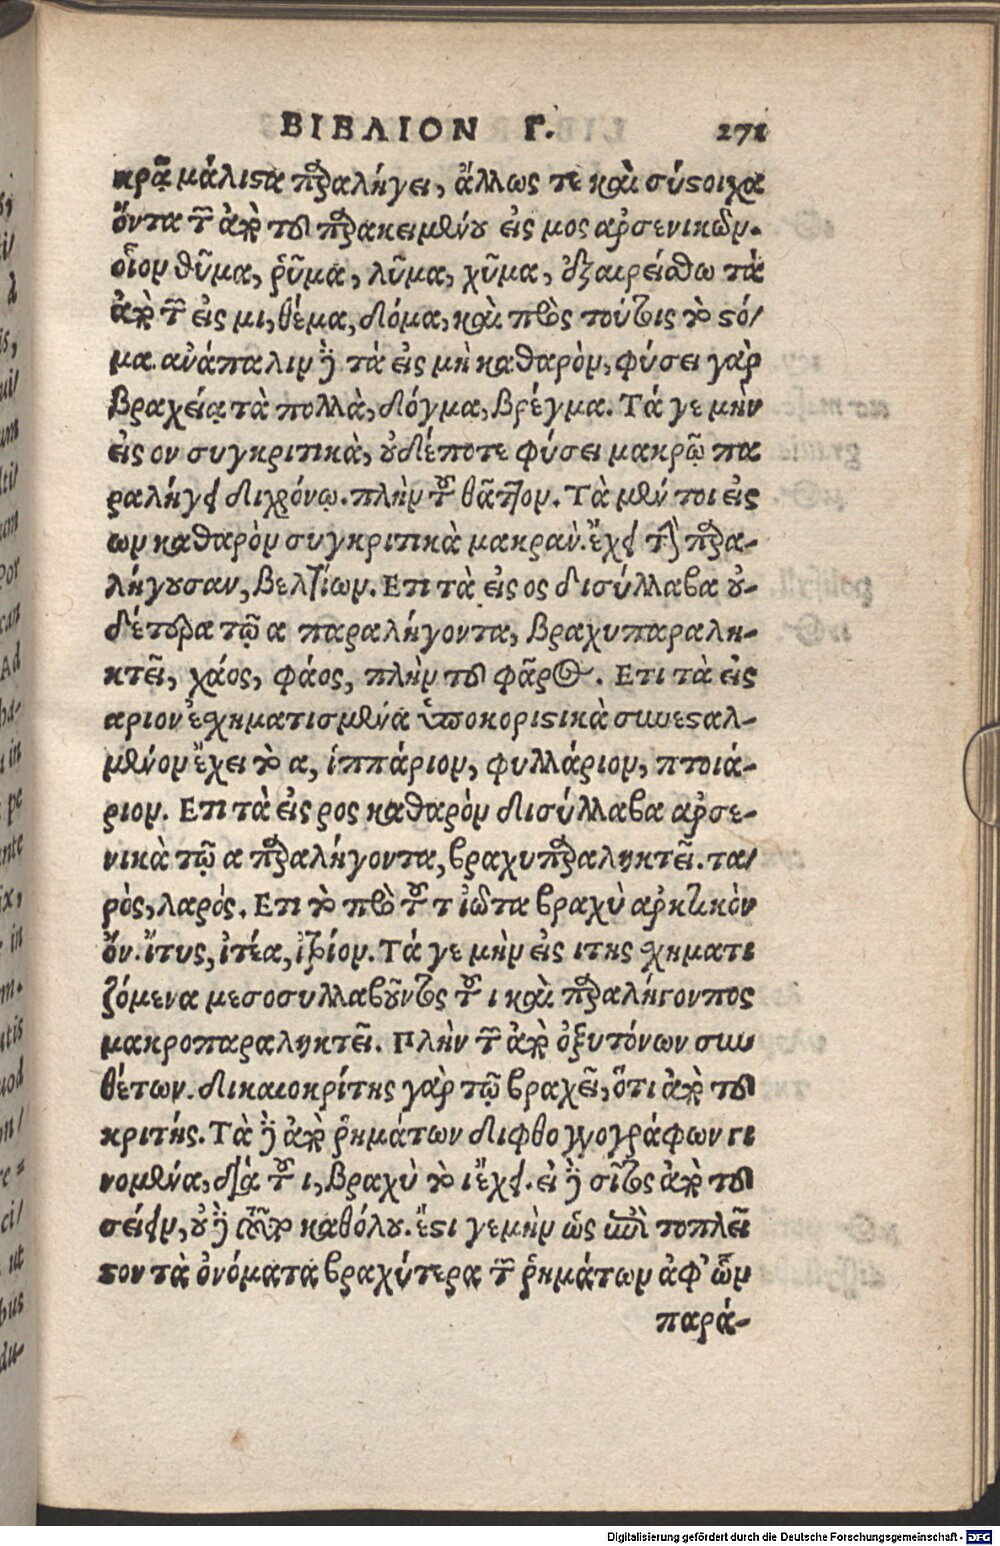 ΒΙΒΛΙΟΝ Γ. 271
κρᾷ μάλιϛα παραλήγει, ἄλλως τε καὶ σύϛοιχα
ὄντα τῶν ἀπὸ τοῦ παρακειμένου εἰς μος ἀρσενικῶν.
οἷον θῦμα, ῥῦμα, λῦμα, χῦμα, ἐξαιρείσθω τὰ
ἀπὸ τῶν εἰς μι, θέμα, δόμα, καὶ πρὸς τούτοις τὸ ϛό/
μα. ἀνάπαλιν δὲ τὰ εἰς μὴ καθαρὸν, φύσει γὰρ
βραχείᾳ τὰ πολλὰ, δόγμα, βρέγμα. Τά γε μὴν
εἰς ον συγκριτικὰ, οὐδέποτε φύσει μακρῷ πα
ραλήγει διχρόνῳ. πλὴν τοῦ θᾶττον. Τὰ μέν τοι εἰς
ων καθαρὸν συγκριτικὰ μακρὰν. ἔχει τὴν παρα-
λήγουσαν, βελτίων. Ετι τὰ εἰς ος δισύλλαβα οὐ-
δέτερα τῷ α παραλήγοντα, βραχυπαραλη-
κτεῖ, χάος, φάος, πλὴν τοῦ φᾶρος. Ετι τὰ εἰς
αριον ἐσχηματισμένα ὑποκοριϛικὰ συνεϛαλ-
μένον ἔχει τὸ α, ἱππάριον, φυλλάριον, πτοιά-
ριον. Ετι τὰ εἰς ρος καθαρὸν δισύλλαβα ἀρσε-
νικὰ τῷ α παραλήγοντα, βραχυπαραληκτεῖ. τα/
ρὸς, λαρός. Ετι τὸ πρὸ τοῦ τ ἰῶτα βραχὺ ἀρκτικὸν
ὄν. ἴτυς, ἰτέα, ἰτρίον. Τά γε μὴν εἰς ιτης σχηματι
ζόμενα μεσοσυλλαβοῦντος τοῦ ι καὶ παραλήγοντος
μακροπαραληκτεῖ. Πλὴν τῶν ἀπὸ ὀξυτόνων συν
θέτων. δικαιοκρίτης γὰρ τῷ βραχεῖ, ὅτι ἀπὸ τοῦ
κριτής. Τὰ δὲ ἀπὸ ῥημάτων διφθογγογράφων γι
νομένα, διὰ τοῦ ι, βραχὺ τὸ ι ἔχει. εἰ δὲ σῖτος ἀπὸ τοῦ
σείειν, οὐ δὲ καθόλου. ἔϛι γεμὴν ὡς ἐπὶ τοπλεῖ
ϛον τὰ ὀνόματα βραχύτερα τῶν ῥημάτων ἀφ' ὧν
παρά-